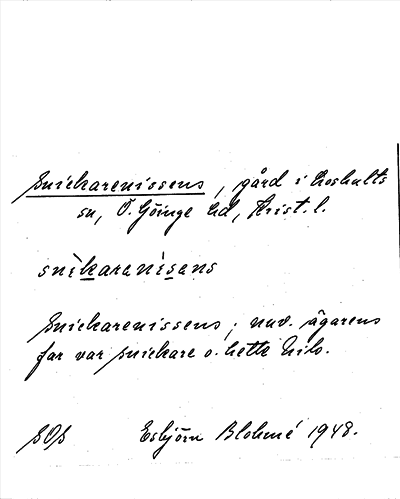 Snickarenissens, gård i Loshults
sn, Ö. Göinge hd, Krist. l.
snìkarenìsens
Snickarenissens; nuv. ägarens
far var snickare o. hette Nils.
SOS Esbjörn Blohmé 1948.